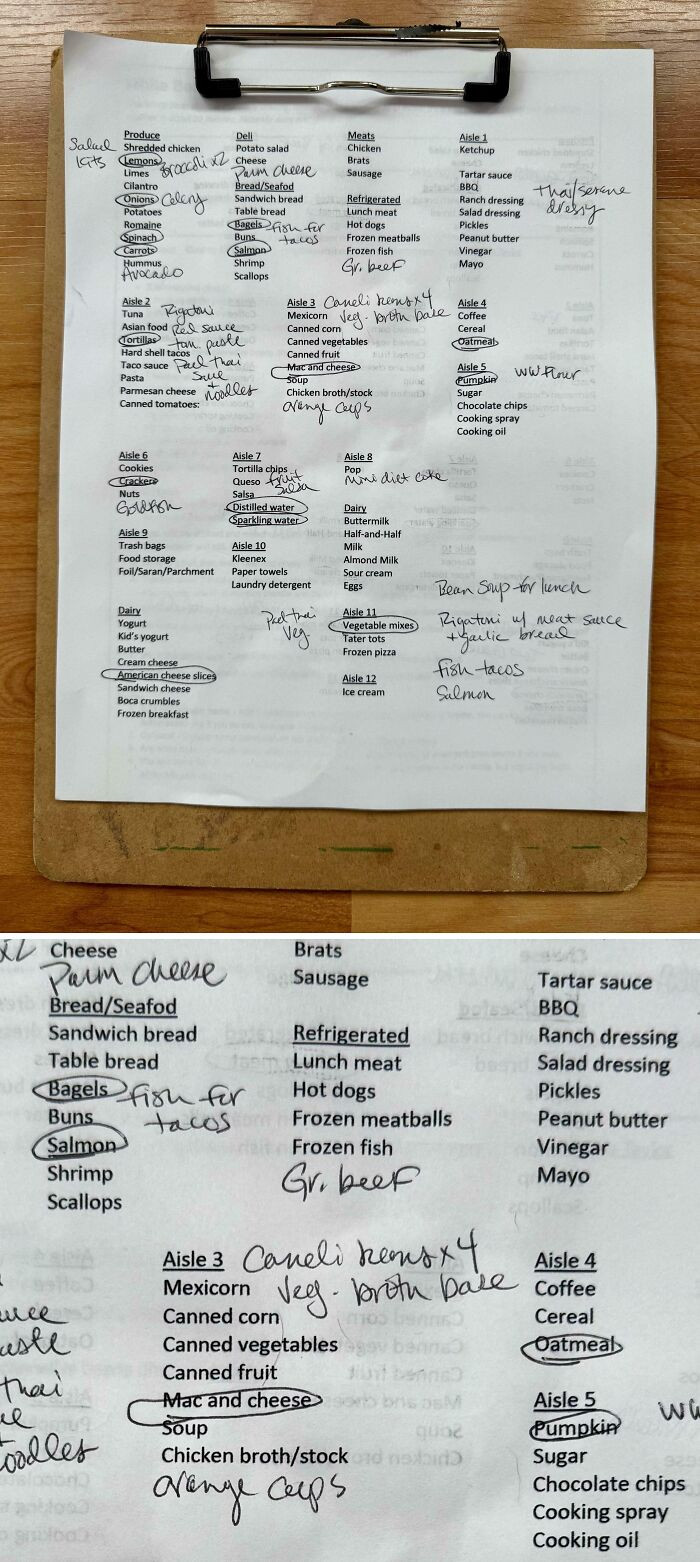 Produce
Salad kits
Shredded chicken
Lemons
Broccoli x2
Limes
Cilantro
Onions Celery
Potatoes
Romaine
Spinach
Carrots
Hummus
Avocado
Deli
Potato salad
Cheese
Parm cheese
Bread/Seafod
Sandwich bread
Table bread
Bagels
Fish for
tacos
Buns
Salmon
Shrimp
Scallops
Meats
Chicken
Brats
Sausage
Refrigerated
Lunch meat
Hot dogs
Frozen meatballs
Frozen fish
Gr. beef
Aisle 1
Ketchup
Tartar sauce
BBQ
Ranch dressing
Salad dressing
Pickles
Peanut butter
Vinegar
Mayo
Thai/
Aisle 2
Tuna Rigatoni
Asian food Red sauce
Tortillas tom. paste
Hard shell tacos
Taco sauce Pad thai
Pasta
+
Parmesan cheese noodles
Canned tomatoes:
Aisle 3 x4
Mexicorn Veg. broth base
Canned corn
Canned vegetables
Canned fruit
Mac and cheese
Soup
Chicken broth/stock
orange cups
Aisle 4
Coffee
Cereal
Oatmeal
Aisle 5
Pumpkin WW Flour
Sugar
Chocolate chips
Cooking spray
Cooking oil
Aisle 6
Cookies
Crackers
Nuts
Goldfish
Aisle 7
Tortilla chips
Queso fruit
Salsa salsa
Distilled water
Sparkling water
Aisle 8
Pop
mini diet coke
Dairy
Buttermilk
Half-and-Half
Milk
Almond Milk
Sour cream
Eggs
Aisle 9
Trash bags
Food storage
Foil/Saran/Parchment
Aisle 10
Kleenex
Paper towels
Laundry detergent
Dairy
Yogurt
Kid's yogurt
Butter
Cream cheese
American cheese slices
Sandwich cheese
Boca crumbles
Frozen breakfast
Pad thai
Veg.
Aisle 11
Vegetable mixes
Tater tots
Frozen pizza
Aisle 12
Ice cream
Bean Soup for lunch
Rigatoni w/ meat sauce
+ garlic bread
fish tacos
Salmon
x2 Cheese
Parm cheese
Bread/Seafod
Sandwich bread
Table bread
Bagels
Fish for
tacos
Buns
Salmon
Shrimp
Scallops
Brats
Sausage
Refrigerated
Lunch meat
Hot dogs
Frozen meatballs
Frozen fish
Gr. beef
Tartar sauce
BBQ
Ranch dressing
Salad dressing
Pickles
Peanut butter
Vinegar
Mayo
thai
oodles
Aisle 3 x4
Mexicorn Veg. broth base
Canned corn
Canned vegetables
Canned fruit
Mac and cheese
Soup
Chicken broth/stock
orange cups
Aisle 4
Coffee
Cereal
Oatmeal
Aisle 5
Pumpkin
Sugar
Chocolate chips
Cooking spray
Cooking oil